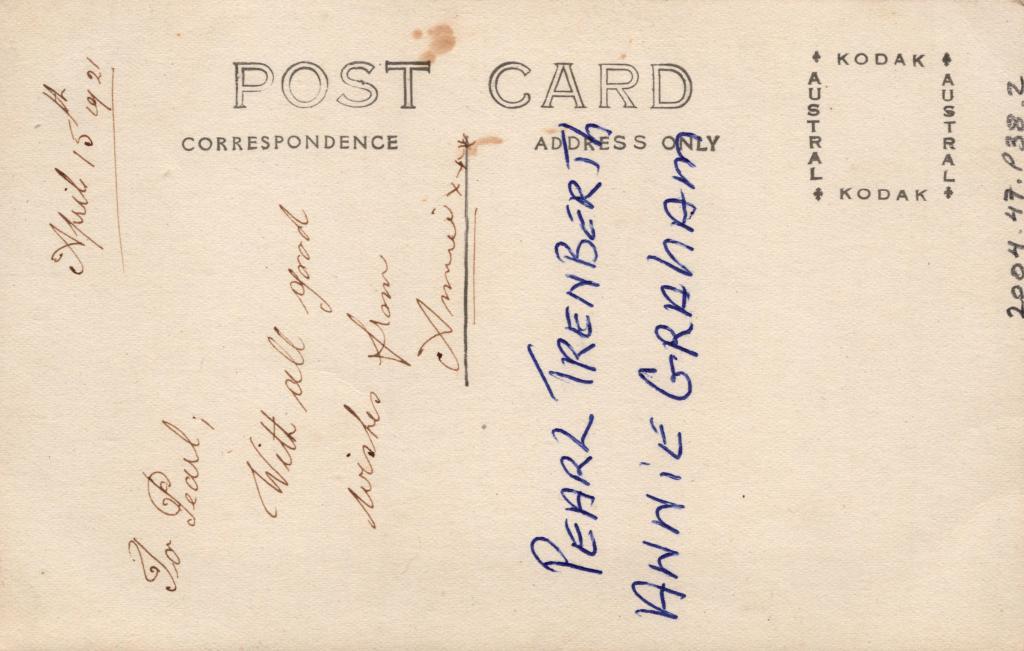 POST CARD
CORRESPONDENCE
ADDRESS ONLY
KODAK
AUSTRAL
AUSTRAL
KODAK
April 15th 1921
To Pearl;
With all good
wishes from
Annie xxx
PEARL TRENBERTH
ANNIE GRAHAM
2004.47.P38.2